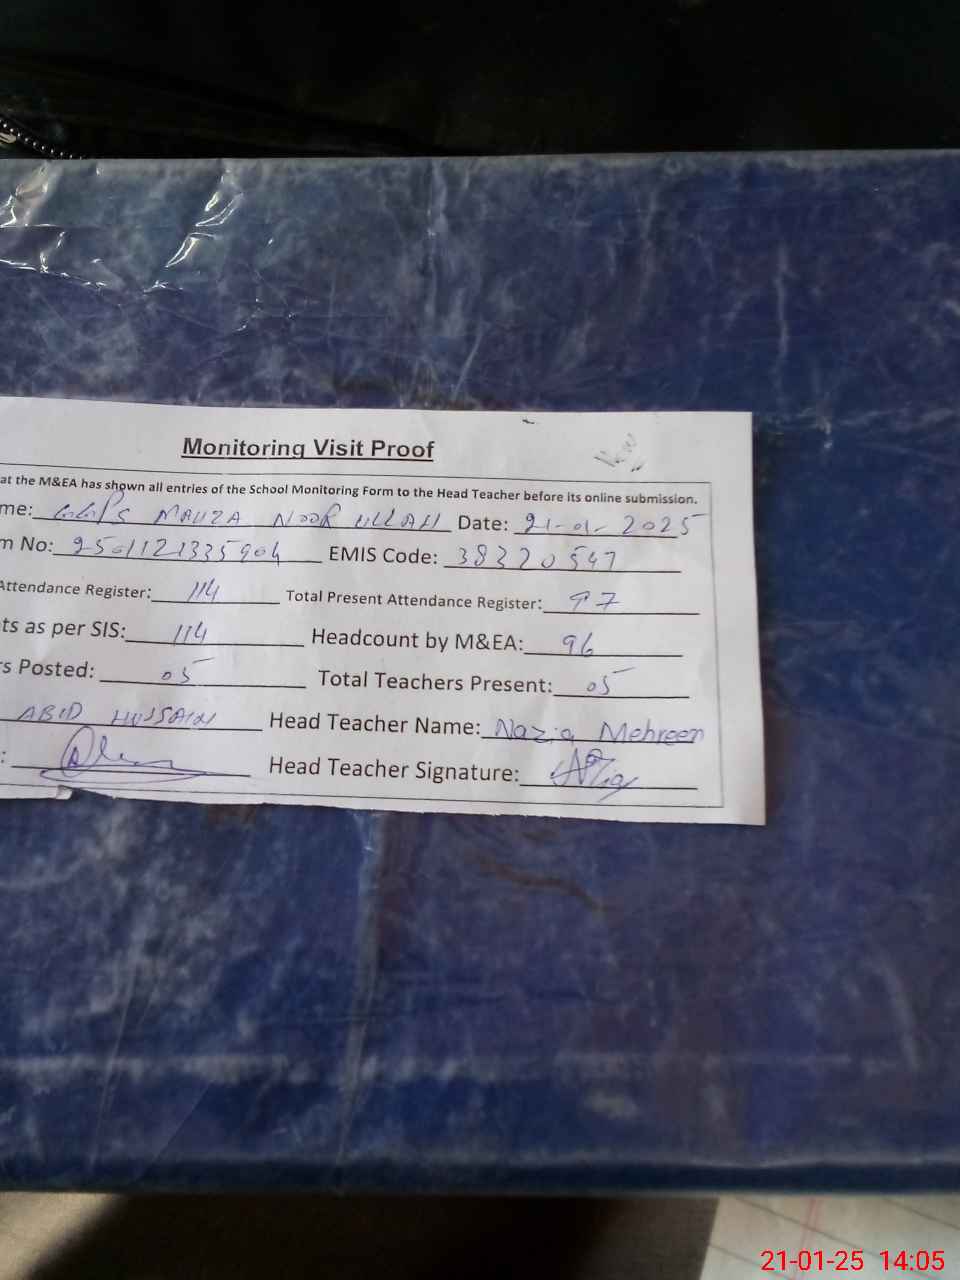 Monitoring Visit Proof
at the M&EA has shown all entries of the School Monitoring Form to the Head Teacher before its online submission.
me: GGPS MAUZA NOOR ULLAH Date: 21-01-2025
m No: 2501121335904 EMIS Code: 38320547
Attendance Register: 114 Total Present Attendance Register: 97
ts as per SIS: 114 Headcount by M&EA: 96
rs Posted: 05 Total Teachers Present: 05
ABID HUSSAIN Head Teacher Name: Nazia Mehreen
: Head Teacher Signature:
21-01-25 14:05